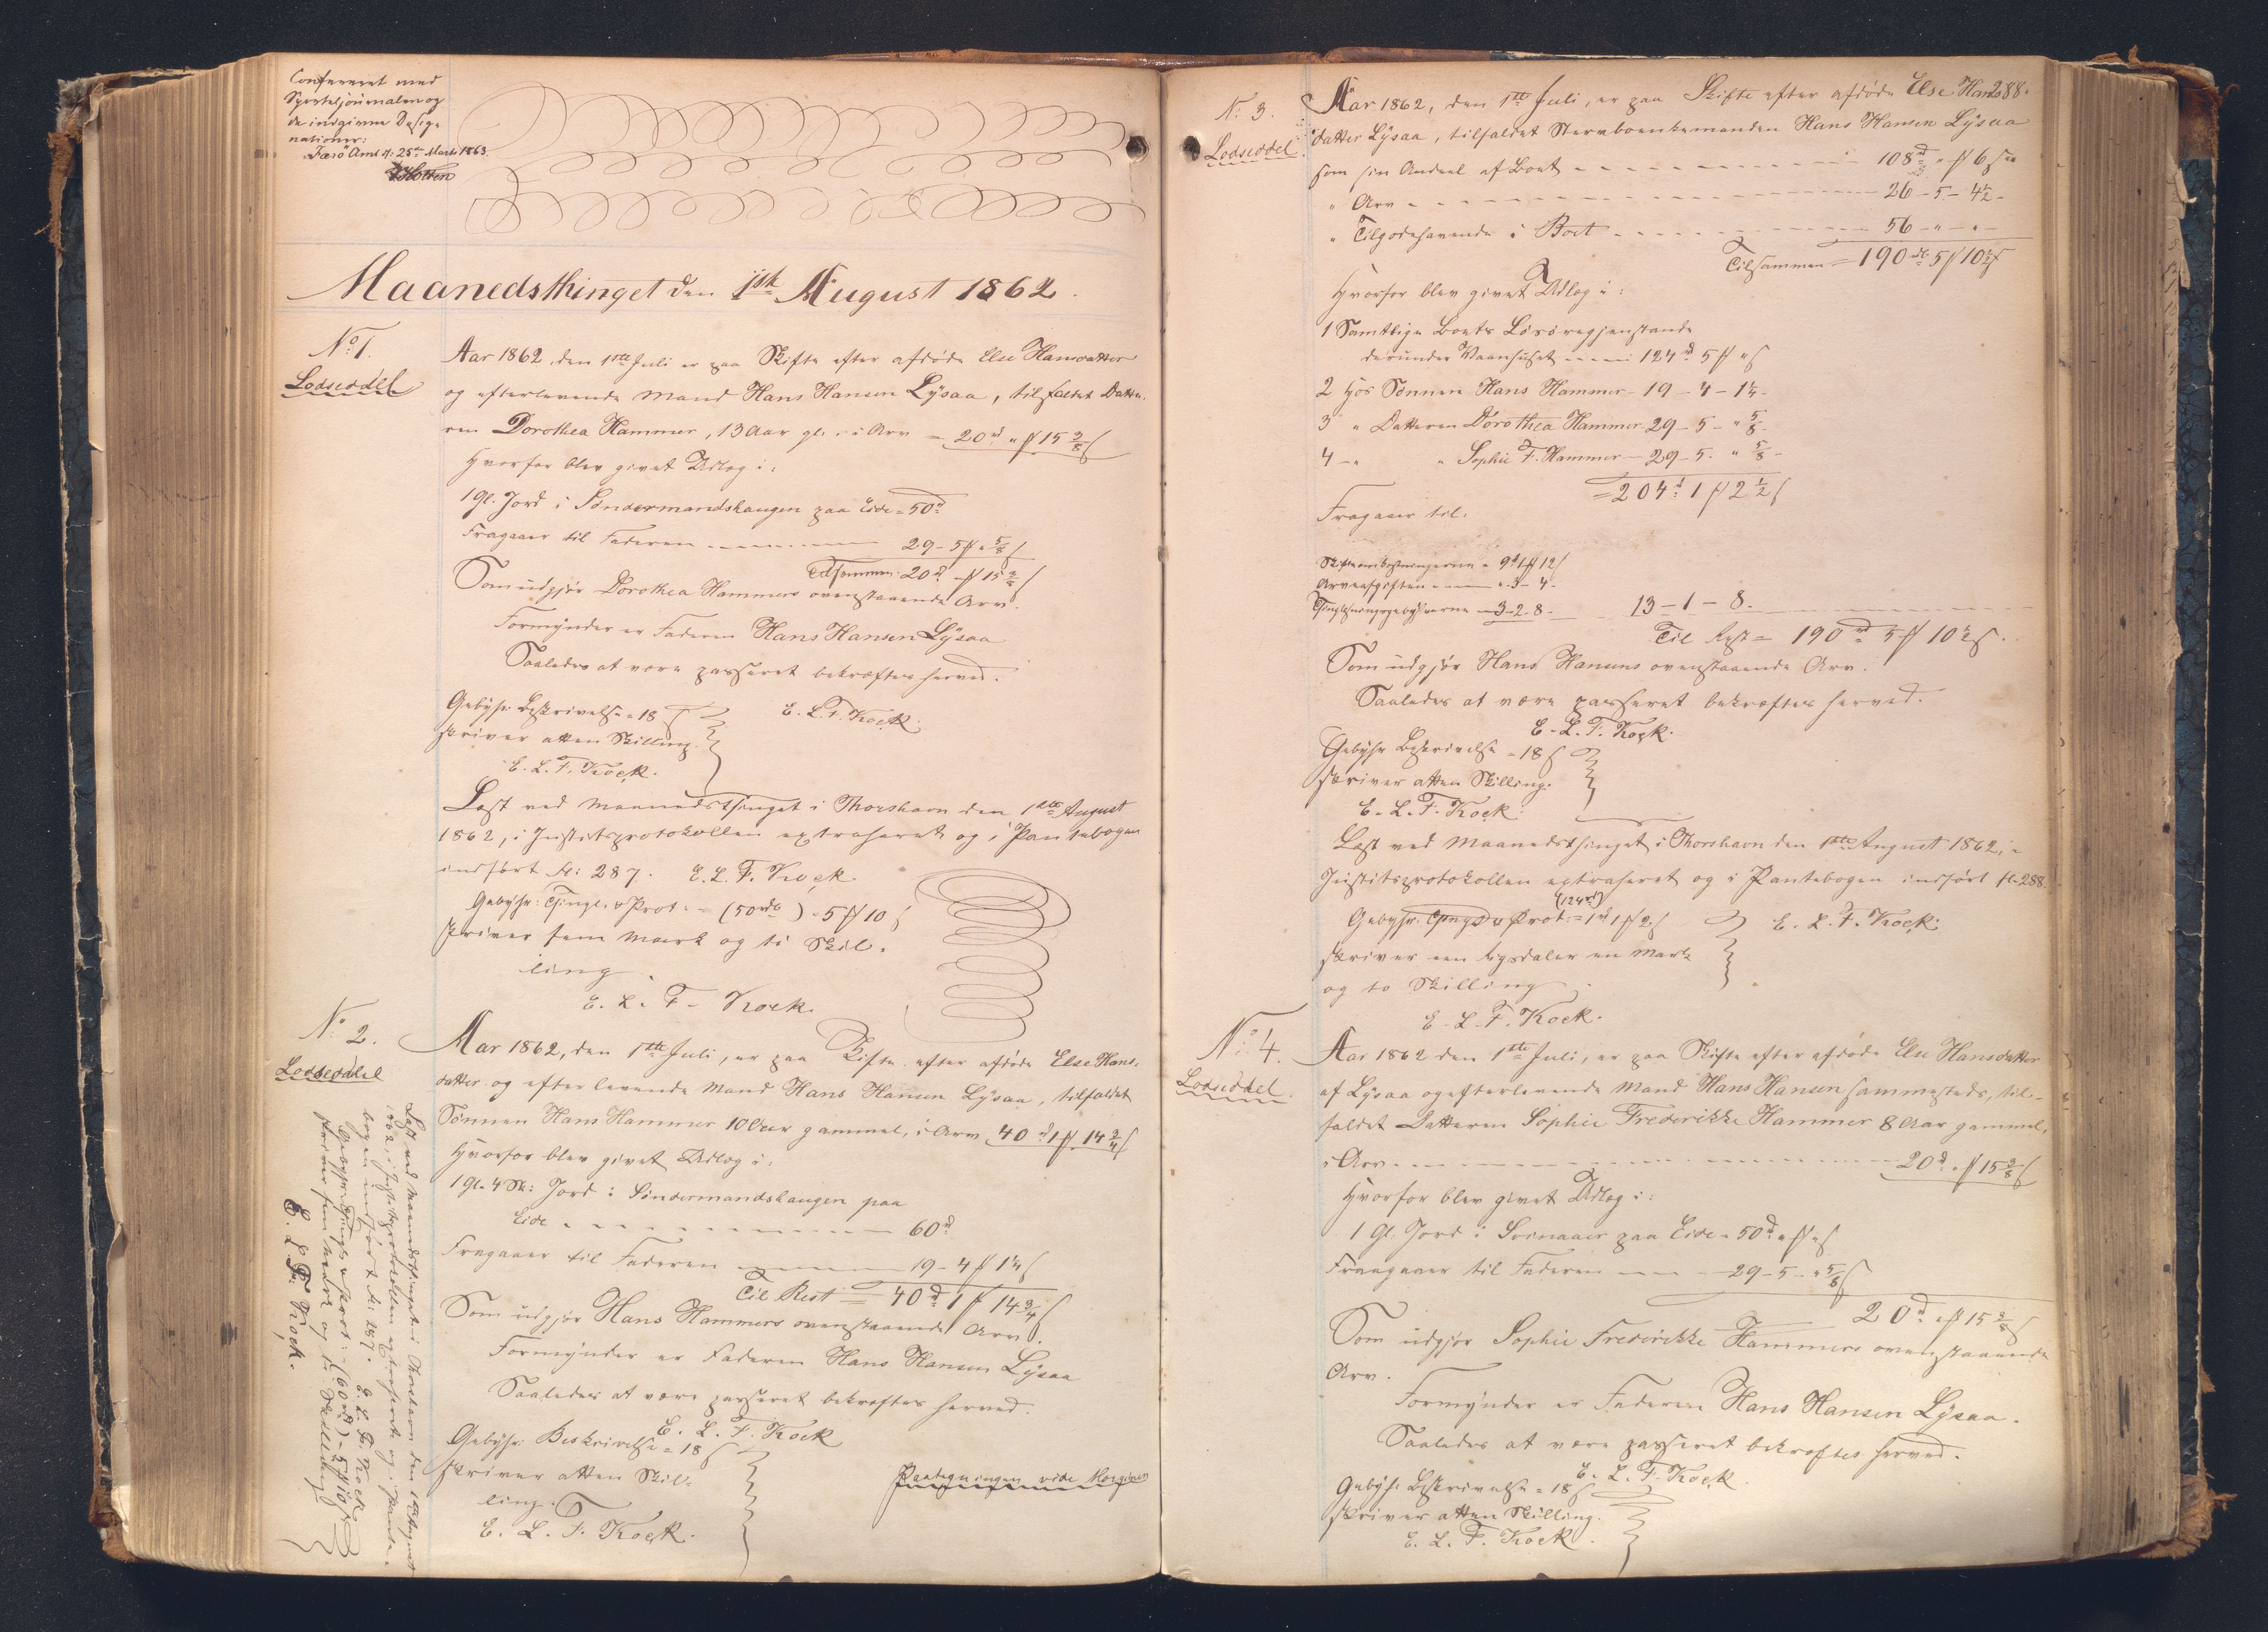 Confereret med
Sporteljournalen og
de indgivne Desig-
nationer.
Færö Amt d: 25de Marts 1863.
Maanedsthinget den 1ste August 1862.
No 1.
Lodseddel
Aar 1862, den 1ste Juli er paa Skifte efter afdøde Else Hansdatter
og efterlevende Mand Hans Hansen Lÿsaa, tilfaldet Datte-
ren Dorothea Hammer, 13 Aar gl. i Arv = 20rd " ß 15 3/8 s
Hvorfor blev givet Udlæg i:
1 Gl. Jord i Søndermandshaugen paa Eide = 50rd
Fragaaer til Faderen 29 - 5 ß " 5/8 s
Tilsammen 20rd - ß 15 3/8 s
Som udgjør Dorothea Hammers ovenstaaende Arv.
Formynder er Faderen Hans Hansen Lÿsaa
Saaledes at være passeret bekræftes herved.
E. L. F. Kock.
Gebÿhr Beskrivelse = 18 s
skriver atten Skilling.
E. L. F. Kock.
Læst ved Maanedsthinget i Thorshavn den 1ste August
1862, i Justitsprotokollen extraheret og i Pantebogen
indført fl: 287. E. L. F. Kock.
Gebÿhr: Tingl. & Prot: = (50rd) = 5 ß 10 s
skriver fem Mark og ti Skil-
ling.
E. L. F. Kock.
No 2.
Lodseddel
Aar 1862, den 1ste Juli, er paa Skifte efter afdøde Else Hans-
datter og efterlevende Mand Hans Hansen Lÿsaa, tilfaldet
Sønnen Hans Hammer 10 Aar gammel, i Arv 40rd 1 ß 14 3/4 s
Hvorfor blev givet Udlæg i:
1 Gl. 4 Sk: Jord i Søndermandshaugen paa
Eide 60rd
Fragaaer til Faderen 19 - 4 ß 1 1/4 s
Til Rest = 40rd 1 ß 14 3/4 s
Som udgjør Hans Hammers ovenstaaende Arv.
Formÿnder er Faderen Hans Hansen Lÿsaa
Saaledes at være passeret bekræftes herved.
E. L. F. Kock
Gebÿhr Beskrivelse = 18 s
skriver atten Skil-
ling.
E. L. F. Kock.
Paategningen vide Marginen
Læst ved Maanedsthinget i Thorshavn den 1ste August
1862, i Justitsprotokollen extraheret og i Pante-
bogen indført fl: 287. E. L. F. Kock
Gebÿhr: Tingl. & Prot: = (60rd) = 5 ß 10 s
skriver fem Mark og ti Skilling.
E. L. F. Kock.
288.
No 3.
Lodseddel.
Aar 1862, den 1ste Juli, er paa Skifte efter afdøde Else Hans-
datter Lÿsaa, tilfaldet Stervboenkemanden Hans Hansen Lÿsaa
som sin Andeel af Boet 108rd " ß 6 s
" Arv 26 - 5 - 4 1/2 -
" Tilgodehavende i Boet 56 - " - " -
Tilsammen = 190rd 5 ß 10 1/2 s
Hvorfor blev givet Udlæg i:
1 Samtlige Boets Løsøregjenstande
derunder Vaanhuset 124rd 5 ß " s
2 hos Sønnen Hans Hammer - 19 - 4 - 1 1/4 -
3 " Datteren Dorothea Hammer 29 - 5 - " 5/8 -
4 - " " Sophie F. Hammer - 29 - 5 - " 5/8 -
= 204rd 1 ß 2 1/2 s
Fragaaer til:
Skifteomkostningerne = 9rd 1 ß 12 s
Arveafgiften " - 3 - 4 -
Tinglæsningsgebÿhrerne - 3 - 2 - 8 - 13 - 1 - 8.
Til Rest = 190rd 5 ß 10 1/2 s.
Som udgjør Hans Hansens ovenstaaende Arv.
Saaledes at være passeret bekræftes herved.
E. L. F. Kock.
Gebÿhr Beskrivelse = 18 s
skriver atten Skilling.
E. L. F. Kock.
Læst ved Maanedsthinget i Thorshavn den 1ste August 1862, i
Justitsprotokollen extraheret og i Pantebogen indført fl. 288.
(124rd)
Gebÿhr: Tingl. & Prot: = 1rd 1 ß 2 s E. L. F. Kock.
skriver een Rigsdaler en Mark
og to Skilling.
E. L. F. Kock.
No 4.
Lodseddel.
Aar 1862 den 1ste Juli, er paa Skifte efter afdøde Else Hansdatter
af Lÿsaa og efterlevende Mand Hans Hansen sammesteds, til-
faldet Datteren Sophie Frederikke Hammer 8 Aar gammel,
i Arv 20rd " ß 15 3/8 s
Hvorfor blev givet Udlæg i:
1 Gl. Jord i Svinaaer paa Eide = 50rd " ß " s
Fraagaaer til Faderen 29 - 5 - " 5/8 s
20rd " ß 15 3/8 s
Som udgjør Sophie Frederikke Hammers ovenstaaende
Arv.
Formÿnder er Faderen Hans Hansen Lÿsaa.
Saaledes at være passeret bekræftes herved.
E. L. F. Kock.
Gebÿhr Beskrivelse = 18 s
skriver atten Skilling.
E. L. F. Kock.